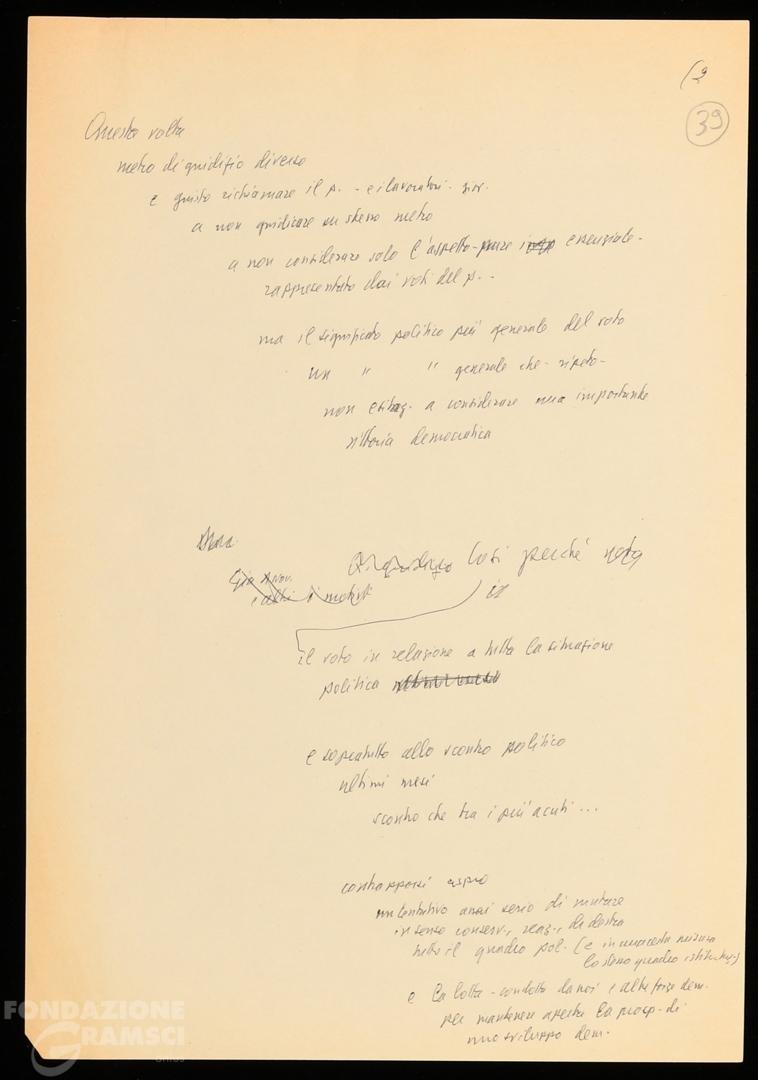 (9
39
Questa volta
metro di giudizio diverso
e giusto richiamare il p. - e i lavoratori -
a non giudicare su stesso metro
a non considerare solo l'aspetto - pure essenziale -
rappresentato dai voti del p. -
ma il significato politico più generale del voto
un " " generale che - ripeto -
non esitiag. a considerare una importante
vittoria democratica
così perché
e altri i motivi
il voto in relazione a tutta la situazione
politica
e sopratutto allo scontro politico
ultimi mesi
scontro che tra i più acuti ...
contrapporsi aspro
un tentativo assai serio di mutare
in senso conserv., reaz., di destra
tutto il quadro pol. - (e in una certa misura
lo stesso quadro istituz.)
e la lotta - condotta da noi e altre forze dem. -
per mantenere aperta la prosp. di
uno sviluppo dem. -
FONDAZIONE
GRAMSCI
onlus